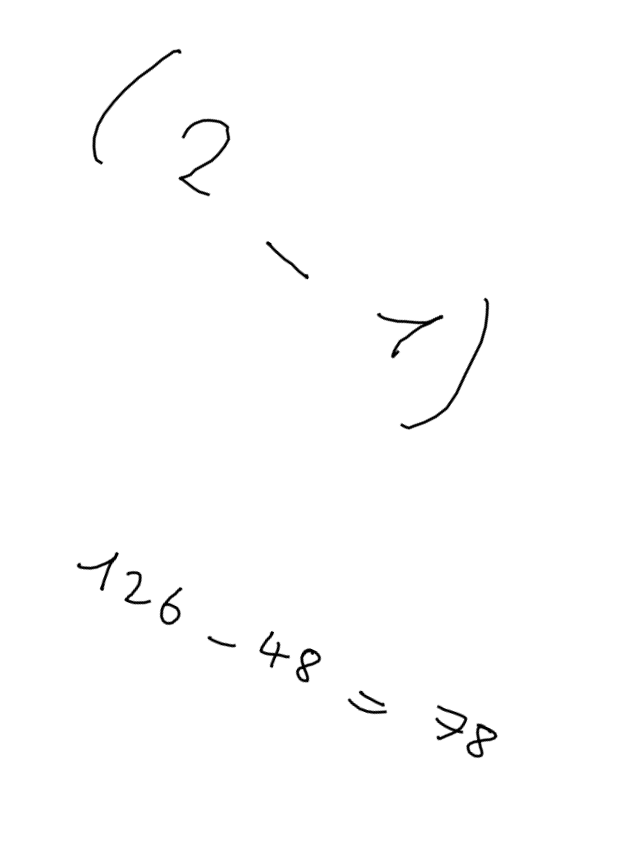 (2 - 1)
126 - 48 = 78